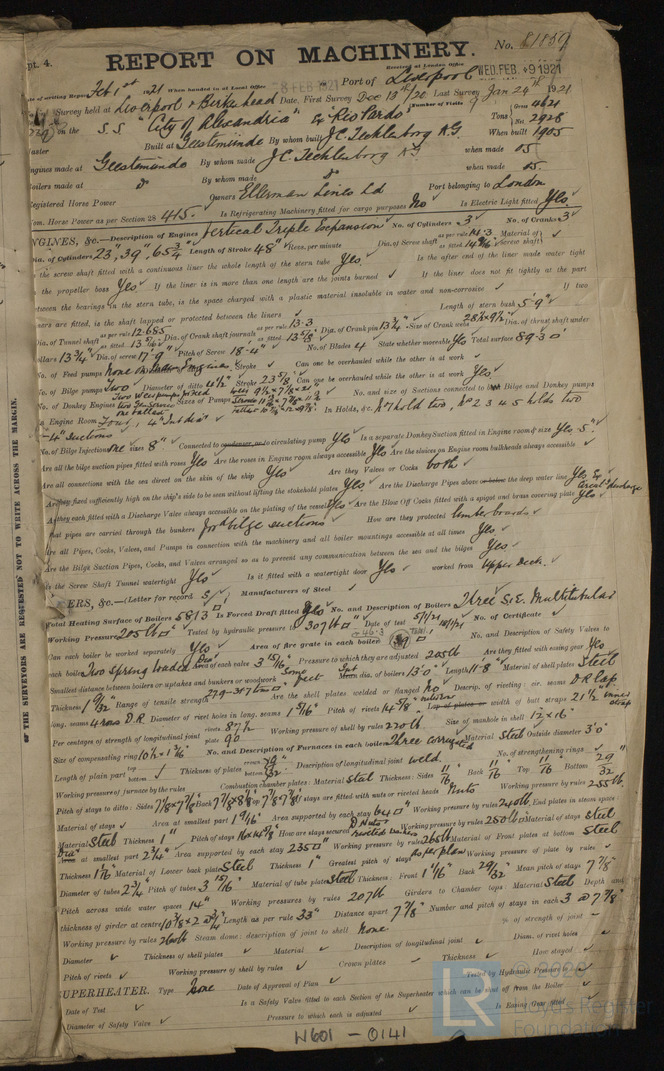 pt. 4.
REPORT ON MACHINERY.
No. 81839
Received at London Office WED. FEB. 9 1921
Date of writing Report Feb 1st 1921 When handed in at Local Office 8 FEB 1921 Port of Liverpool
Survey held at Liverpool & Birkenhead Date, First Survey Dec 13th/20 Last Survey Jan 24th 1921
Number of Visits 9
on the S.S. "City of Alexandria" Ex "Rio Pardo" Tons Gross 4621 Net 2928
Master Built at Geestemünde By whom built J.C. Tecklenborg A.G. When built 1905
Engines made at Geestemunde By whom made J.C. Tecklenborg A.G. when made 05
Boilers made at Do By whom made Do when made 05.
Registered Horse Power Owners Ellerman Lines Ld Port belonging to London
Nom. Horse Power as per Section 28 415. Is Refrigerating Machinery fitted for cargo purposes No Is Electric Light fitted Yes
ENGINES, &c.—Description of Engines Vertical Triple Expansion No. of Cylinders 3 No. of Cranks 3
Dia. of Cylinders 23", 39", 65¾" Length of Stroke 48" Revs. per minute Dia. of Screw shaft as per rule 14.3 as fitted Material of screw shaft
the screw shaft fitted with a continuous liner the whole length of the stern tube Yes Is the after end of the liner made water tight
the propeller boss Yes If the liner is in more than one length are the joints burned If the liner does not fit tightly at the part
between the bearings in the stern tube, is the space charged with a plastic material insoluble in water and non-corrosive If two
liners are fitted, is the shaft lapped or protected between the liners Length of stern bush 5'9"
Dia. of Tunnel shaft as per rule 12.685 as fitted 13 5/16 Dia. of Crank shaft journals as per rule 13.3 as fitted 13 5/8 Dia. of Crank pin 13¾" Size of Crank webs 28½ x 9½ Dia. of thrust shaft under
collars 13¾" Dia. of screw 17'9" Pitch of Screw 18'-4" No. of Blades 4 State whether moveable Yes Total surface 89.3
No. of Feed pumps none on Main Engines Stroke Can one be overhauled while the other is at work
No. of Bilge pumps Two Diameter of ditto 4½" Stroke 23 5/8 Can one be overhauled while the other is at work Yes
No. of Donkey Engines Sizes of Pumps No. and size of Suctions connected to both Bilge and Donkey pumps
In Engine Room Four, 4" In Holds, &c. No 1 hold two, No 2 3 4 5 holds two
4" suctions
No. of Bilge Injections one sizes 8" Connected to circulating pump Yes Is a separate Donkey Suction fitted in Engine room & size Yes 5"
Are all the bilge suction pipes fitted with roses Yes Are the roses in Engine room always accessible Yes Are the sluices on Engine room bulkheads always accessible
Are all connections with the sea direct on the skin of the ship Yes Are they Valves or Cocks both
Are they fixed sufficiently high on the ship's side to be seen without lifting the stokehold plates Yes Are the Discharge Pipes above or below the deep water line Yes Ex Circul. discharge
Are they each fitted with a Discharge Valve always accessible on the plating of the vessel Yes Are the Blow Off Cocks fitted with a spigot and brass covering plate Yes
What pipes are carried through the bunkers for'd bilge suctions How are they protected limber boards
Are all Pipes, Cocks, Valves, and Pumps in connection with the machinery and all boiler mountings accessible at all times Yes
Are the Bilge Suction Pipes, Cocks, and Valves arranged so as to prevent any communication between the sea and the bilges Yes
Is the Screw Shaft Tunnel watertight Yes Is it fitted with a watertight door Yes worked from Upper Deck.
BOILERS, &c.—(Letter for record S) Manufacturers of Steel
Total Heating Surface of Boilers 5813 Is Forced Draft fitted Yes No. and Description of Boilers Three S.E. Multitubular
Working Pressure 205 lb Tested by hydraulic pressure to 307 lb Date of test 5/1/21 No. of Certificate
Can each boiler be worked separately Yes Area of fire grate in each boiler No. and Description of Safety Valves to
each boiler Two spring loaded Area of each valve 3 15/16 Pressure to which they are adjusted 205 lb Are they fitted with easing gear Yes
Smallest distance between boilers or uptakes and bunkers or woodwork some feet Mean dia. of boilers 13'0" Length 11'8" Material of shell plates Steel
Thickness 1 9/32 Range of tensile strength Are the shell plates welded or flanged no Descrip. of riveting: cir. seams D R Lap
long. seams D.R Diameter of rivet holes in long. seams 1 5/16" Pitch of rivets width of butt straps 21½" inner strap
Per centages of strength of longitudinal joint rivets 87½ plate 90 Working pressure of shell by rules 220 lb Size of manhole in shell 12" x 16"
Size of compensating ring No. and Description of Furnaces in each boiler Three corrugated Material Steel Outside diameter 3'0"
Length of plain part top bottom Thickness of plates crown bottom 19/32 Description of longitudinal joint weld No. of strengthening rings
Working pressure of furnace by the rules Combustion chamber plates: Material Steel Thickness: Sides 11/16 Back 11/16 Top 11/16 Bottom 29/32
Pitch of stays to ditto: Sides 7⅞ x 7⅞ Back Top If stays are fitted with nuts or riveted heads Nuts Working pressure by rules 255 lb
Material of stays Area at smallest part 1 9/16" Area supported by each stay 64 Working pressure by rules 240 lb End plates in steam space
Material Steel Thickness 1" Pitch of stays 16 x 14⅝" How are stays secured D Nuts Working pressure by rules 250 lb Material of stays Steel
at smallest part 2¾" Area supported by each stay 235 Working pressure by rules 265 lb Material of Front plates at bottom Steel
Thickness 1 1/16 Material of Lower back plate Steel Thickness 1" Greatest pitch of stays As per plan Working pressure of plate by rules
Diameter of tubes 2¾" Pitch of tubes 3 15/16" Material of tube plates Steel Thickness: Front 1 1/16" Back 29/32 Mean pitch of stays 7⅞"
Pitch across wide water spaces 14" Working pressures by rules 207 lb Girders to Chamber tops: Material Steel Depth and
thickness of girder at centre 10⅜ x 2 @ ¾ Length as per rule 33" Distance apart 7⅞" Number and pitch of stays in each 3 @ 7⅞"
Working pressure by rules 260 lb Steam dome: description of joint to shell None % of strength of joint
Diameter Thickness of shell plates Material Description of longitudinal joint Diam. of rivet holes
Pitch of rivets Working pressure of shell by rules Crown plates Thickness How stayed
SUPERHEATER. Type None Date of Approval of Plan Tested by Hydraulic Pressure to
Date of Test Is a Safety Valve fitted to each Section of the Superheater which can be shut off from the Boiler
Diameter of Safety Valve Pressure to which each is adjusted Is Easing Gear fitted
W601 - 0141
OF THE SURVEYORS ARE REQUESTED NOT TO WRITE ACROSS THE MARGIN.
LR
© 2022
Lloyd's Register
Foundation